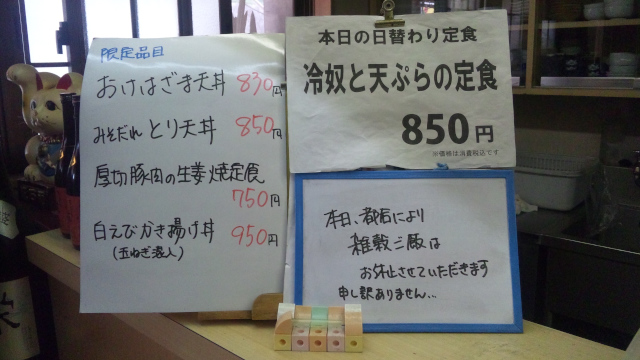 限定品目
おけはざま天丼 830円
みそだれとり天丼 850円
厚切豚肉の生姜焼定食
750円
白えびかき揚げ丼 950円
(玉ねぎ混入)
本日の日替わり定食
冷奴と天ぷらの定食
850円
※価格は消費税込です
本日、都合により
雑穀ご飯は
お休止させていただきます
申し訳ありません…